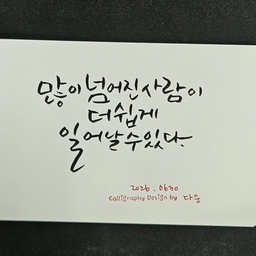 많이 넘어진 사람이
더 쉽게
일어날 수 있다.
2026. 0630
Calligraphy Design by 다운